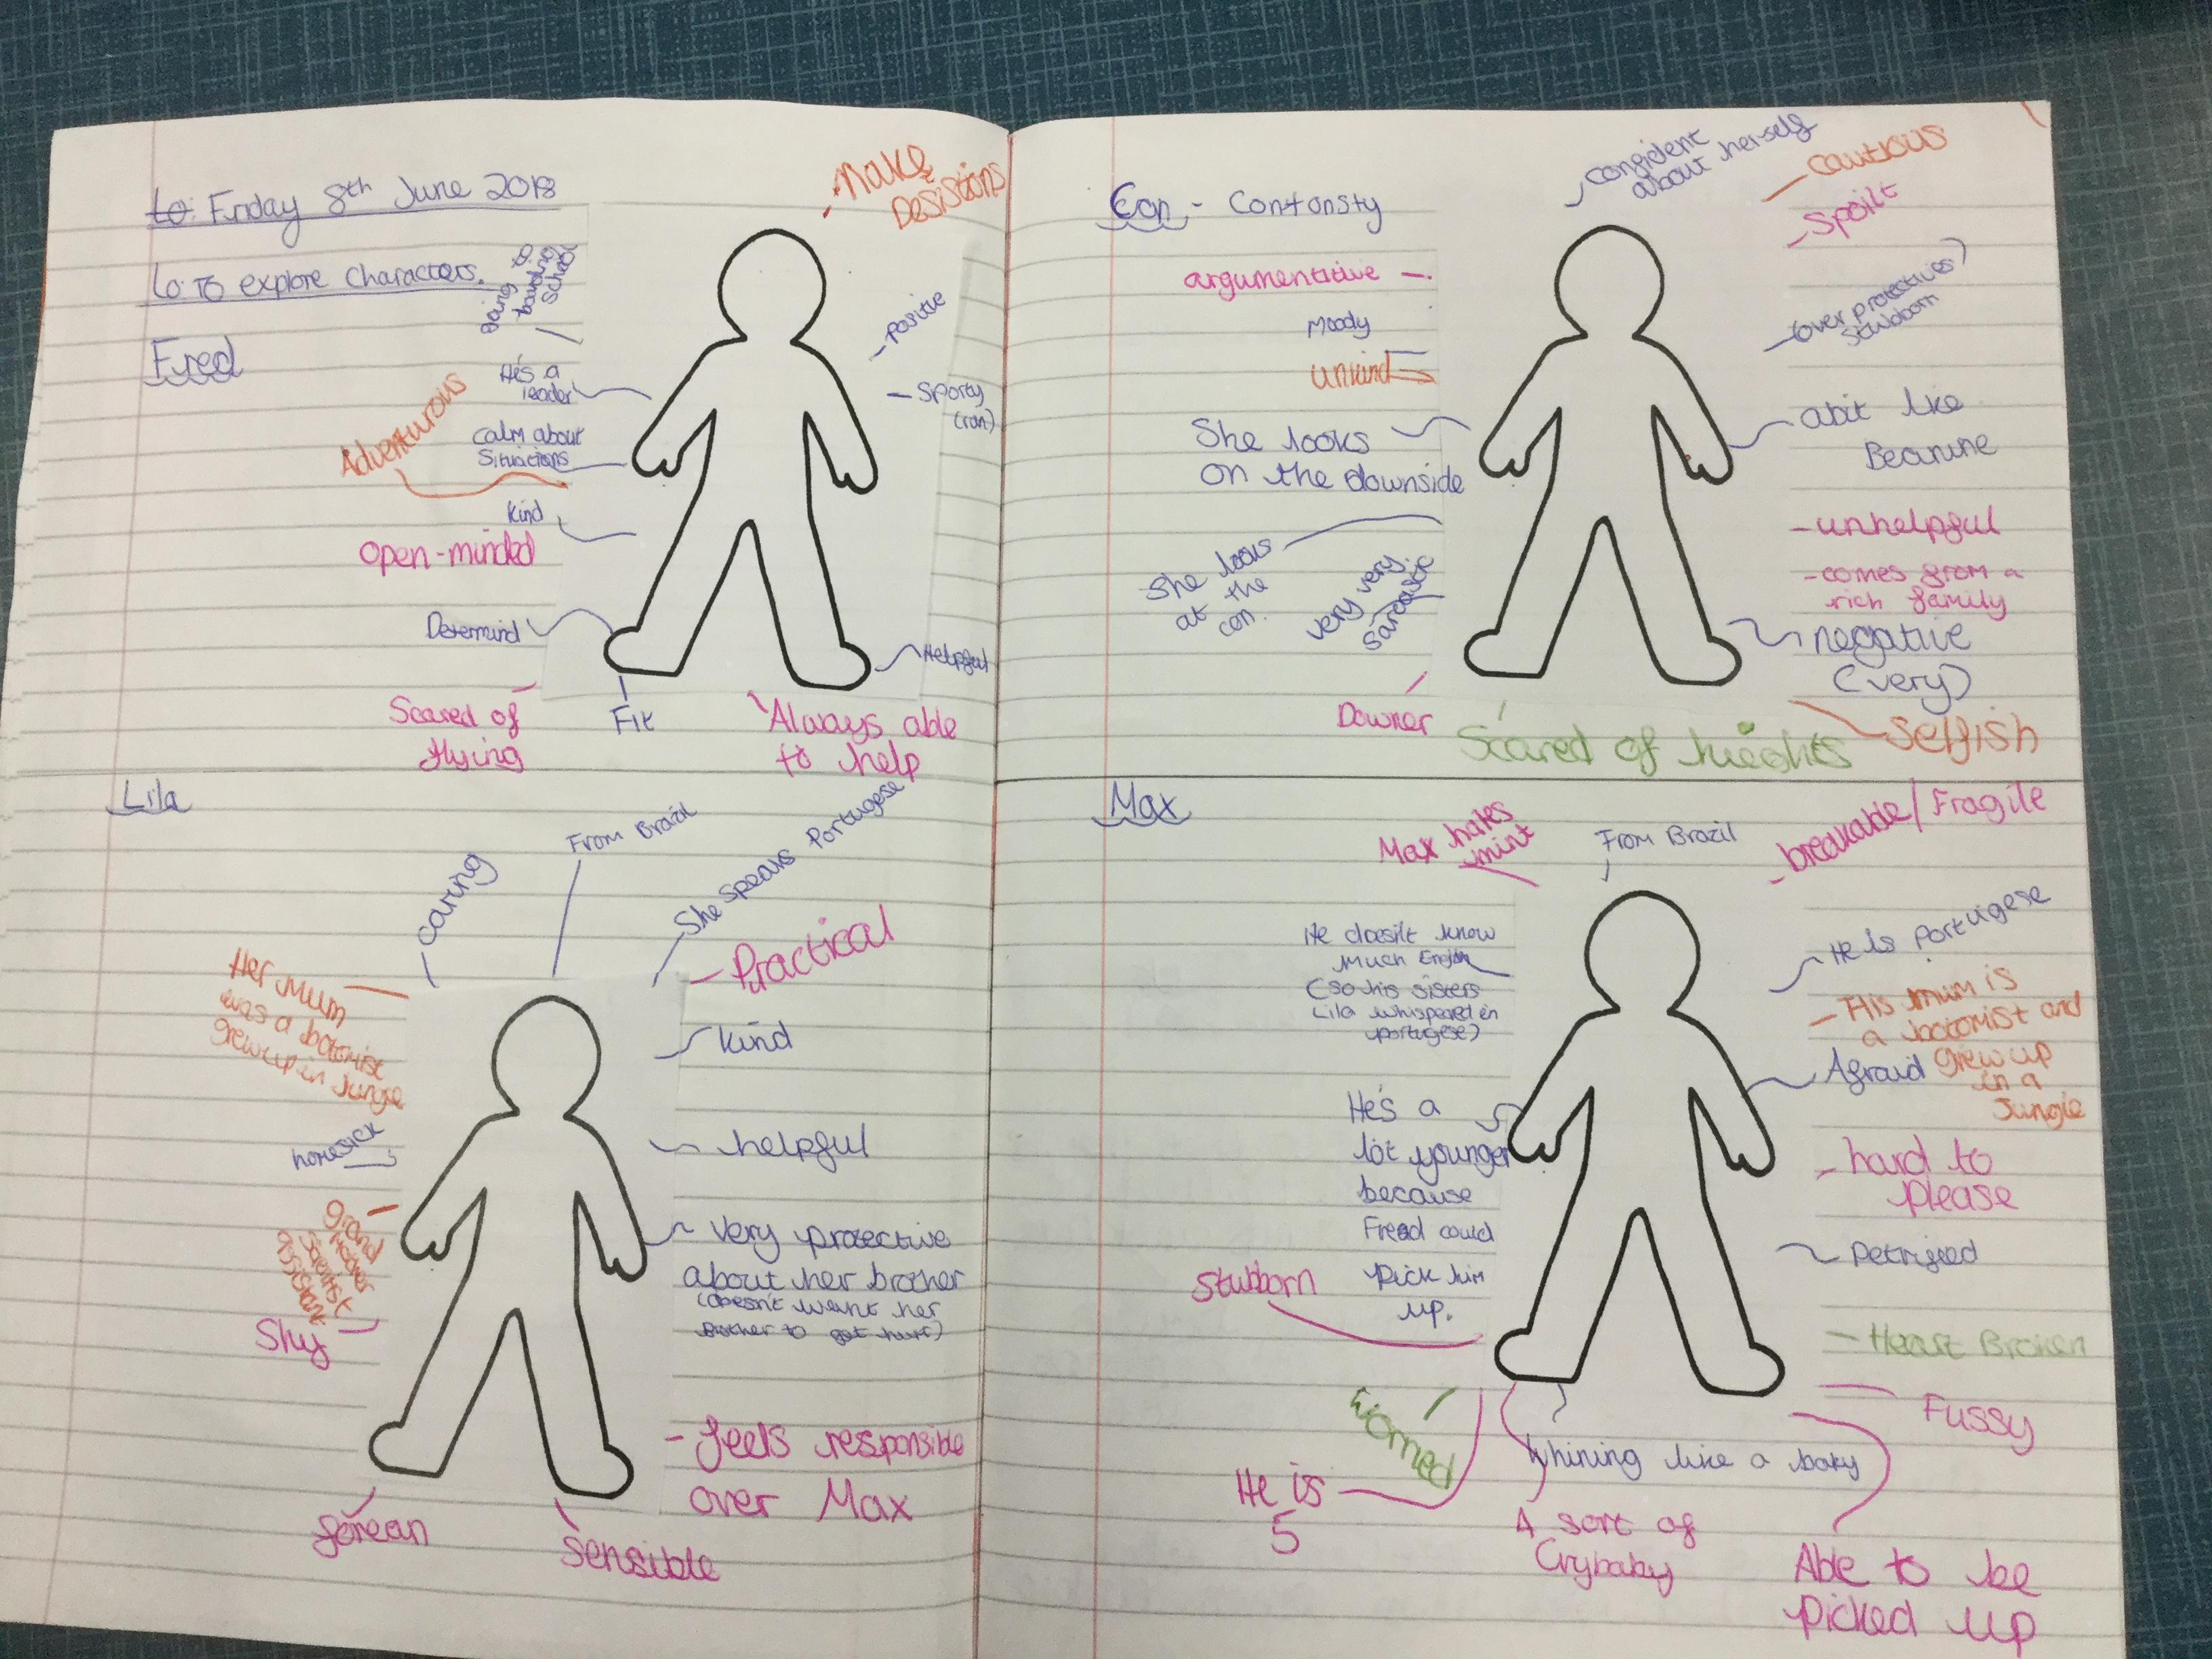 Lo: Friday 8th June 2018
Lo: To explore characters.
Fred
Make
Desistions
going to
boarding
school
Positive
He's a
leader
Sporty
(ran)
Adventurous
calm about
Situations
Kind
Open-minded
Determind
Helpful
Scared of
flying
Fit
Always able
to help
Con - Contonsty
confident
about herself
cautious
Spoilt
argumentitive
Moody
unkind
over protective
stubborn
She looks
on the downside
abit like
Beanine
She looks
at the
con.
very very
Sarcastic
unhelpful
comes from a
rich family
negative
(very)
Downer
Scared of hieghts
Selfish
Lila
caring
From Brazil
She speaks Portugese
Practical
Her Mum
was a botomist
grew up in Jungle
Kind
homesick
helpful
grand
Mother
Scientist
assistant
Shy
Very protective
about her brother
(doesn't want her
brother to get hurt)
feels responsible
over Max
forean
Sensible
Max
Max hates
mint
From Brazil
breakable/Fragile
He doesn't know
Much English
(so his sisters
Lila whispered in
portugese)
He is Portugese
His mum is
a botomist and
grew up
in a
Jungle
Afraid
He's a
lot younger
because
Fread could
Pick him
up.
hard to
please
Petrified
Stubborn
Heart Broken
Worried
Fussy
He is
5
Whining like a baby
A sort of
Crybaby
Able to be
Picked up